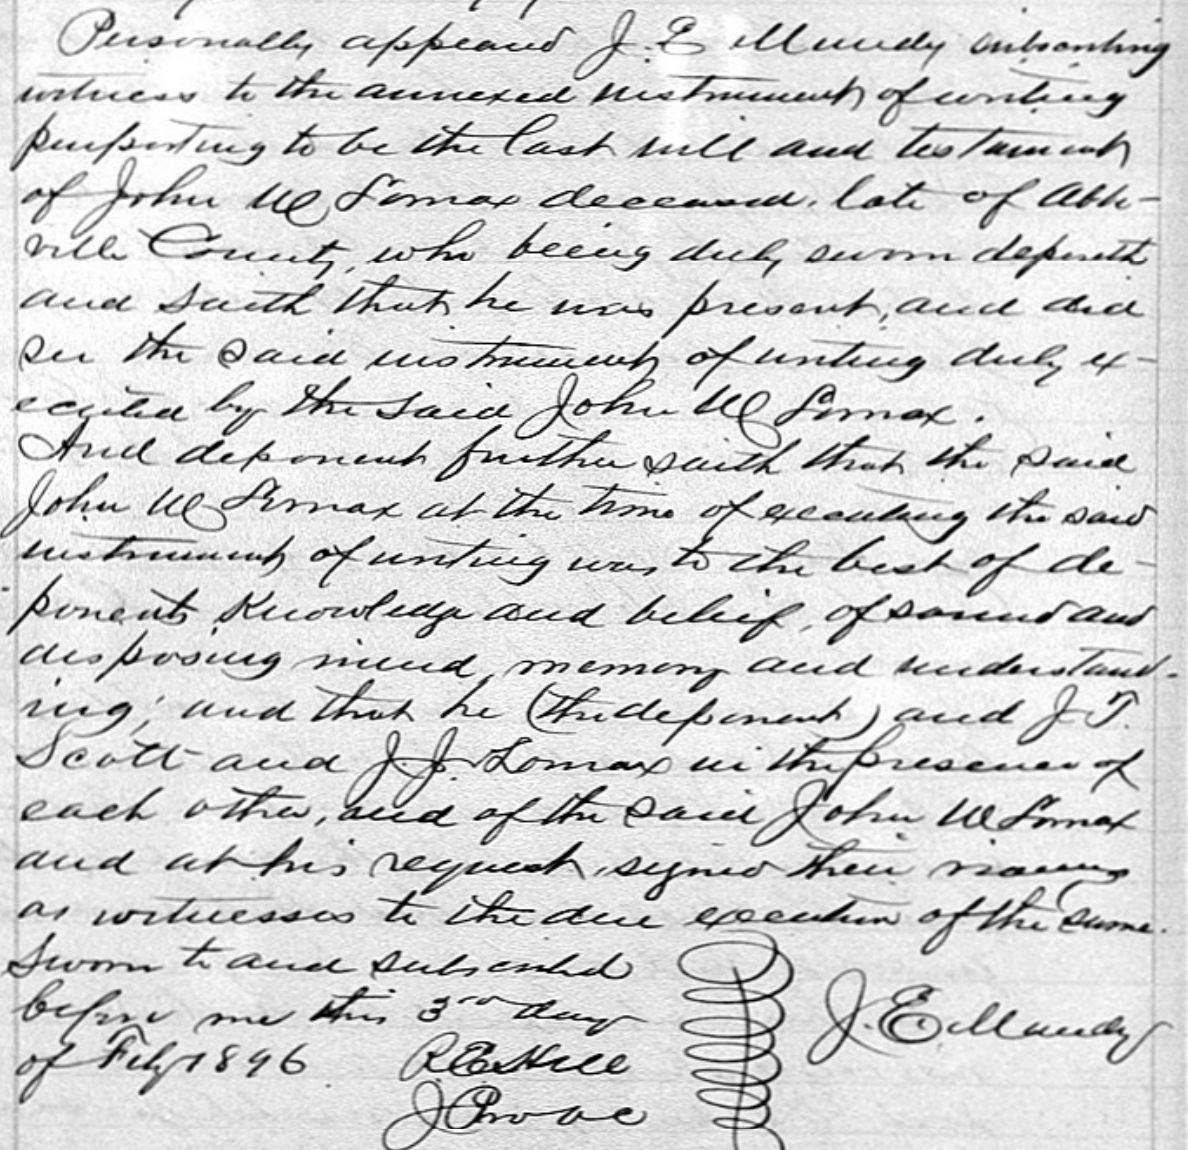 Personally appeared J. E. Mundy subscribing
witness to the annexed instrument of writing
purporting to be the last will and testament
of John W Lomax deceased, late of Abbe-
ville County, who being duly sworn deposeth
and saith that he was present, and did
see the said instrument of writing duly ex-
ecuted by the said John W Lomax.
And deponent further saith that the said
John W Lomax at the time of executing the said
instrument of writing was, to the best of de-
ponents Knowledge and belief, of sound and
disposing mind, memory and understand-
ing; and that he (the deponent) and J. T.
Scott and J. J. Lomax in the presence of
each other, and of the said John W Lomax
and at his request, signed their names
as witnesses to the due execution of the same.
Sworn to and subscribed
before me this 3rd day
of Feby 1896
J. E. Mundy
R. E. Hill